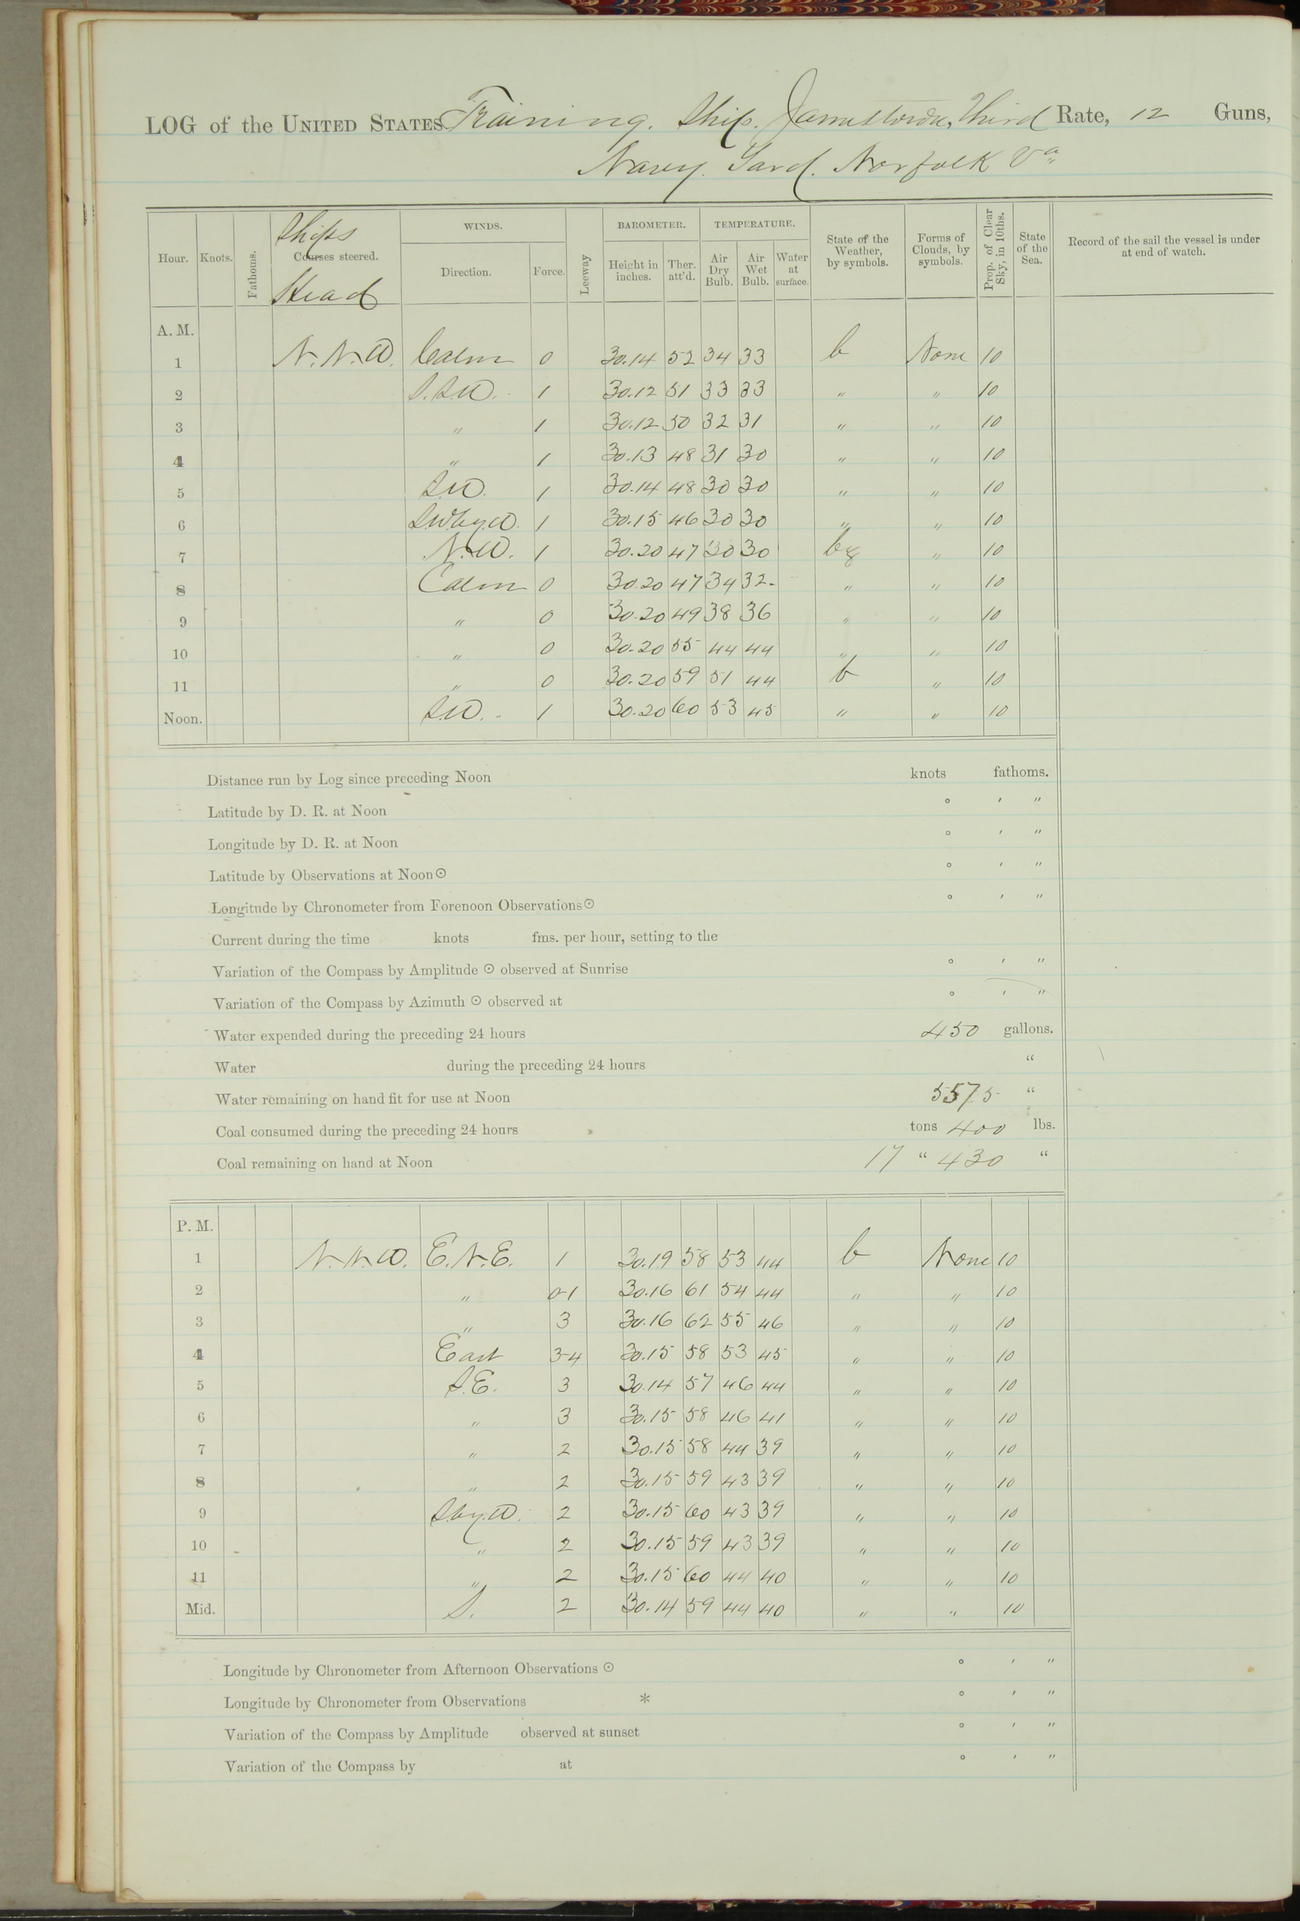 LOG of the UNITED STATES Training Ship Jamestown, Third Rate, 12 Guns,
Navy Yard. Norfolk Va
Hour. Knots. Fathoms. Ships Courses steered. Head WINDS. Direction. Force. Leeway BAROMETER. Height in inches. Ther. att'd. TEMPERATURE. Air Dry Bulb. Air Wet Bulb. Water at surface. State of the Weather, by symbols. Forms of Clouds, by symbols. Prop. of Clear Sky, in 10ths. State of the Sea. Record of the sail the vessel is under at end of watch.
A. M.
1 N.N.W. Calm 0 30.14 52 34 33 b None 10
2 S.S.W. 1 30.12 51 33 33 " " 10
3 " 1 30.12 50 32 31 " " 10
4 " 1 30.13 48 31 30 " " 10
5 S.W. 1 30.14 48 30 30 " " 10
6 S.W by W. 1 30.15 46 30 30 " " 10
7 N.W. 1 30.20 47 30 30 " 10
8 Calm 0 30.20 47 34 32 " " 10
9 " 0 30.20 49 38 36 " " 10
10 " 0 30.20 55 44 44 " " 10
11 " 0 30.20 59 51 44 b " 10
Noon. S.W. 1 30.20 60 53 45 " " 10
Distance run by Log since preceding Noon knots fathoms.
Latitude by D. R. at Noon ° ' "
Longitude by D. R. at Noon ° ' "
Latitude by Observations at Noon ☉ ° ' "
Longitude by Chronometer from Forenoon Observations ☉ ° ' "
Current during the time knots fms. per hour, setting to the
Variation of the Compass by Amplitude ☉ observed at Sunrise ° ' "
Variation of the Compass by Azimuth ☉ observed at ° ' "
Water expended during the preceding 24 hours 450 gallons.
Water during the preceding 24 hours "
Water remaining on hand fit for use at Noon 5575 "
Coal consumed during the preceding 24 hours tons 400 lbs.
Coal remaining on hand at Noon 17 " 430 "
P. M.
1 N.N.W. E.N.E. 1 30.19 58 53 44 b None 10
2 " 0-1 30.16 61 54 44 " " 10
3 " 3 30.16 62 55 46 " " 10
4 East 3-4 30.15 58 53 45 " " 10
5 S.E. 3 30.14 57 46 44 " " 10
6 " 3 30.15 58 46 41 " " 10
7 " 2 30.15 58 44 39 " " 10
8 " 2 30.15 59 43 39 " " 10
9 S by W. 2 30.15 60 43 39 " " 10
10 " 2 30.15 59 43 39 " " 10
11 " 2 30.15 60 44 40 " " 10
Mid. S. 2 30.14 59 44 40 " " 10
Longitude by Chronometer from Afternoon Observations ☉ ° ' "
Longitude by Chronometer from Observations * ° ' "
Variation of the Compass by Amplitude observed at sunset ° ' "
Variation of the Compass by at ° ' "